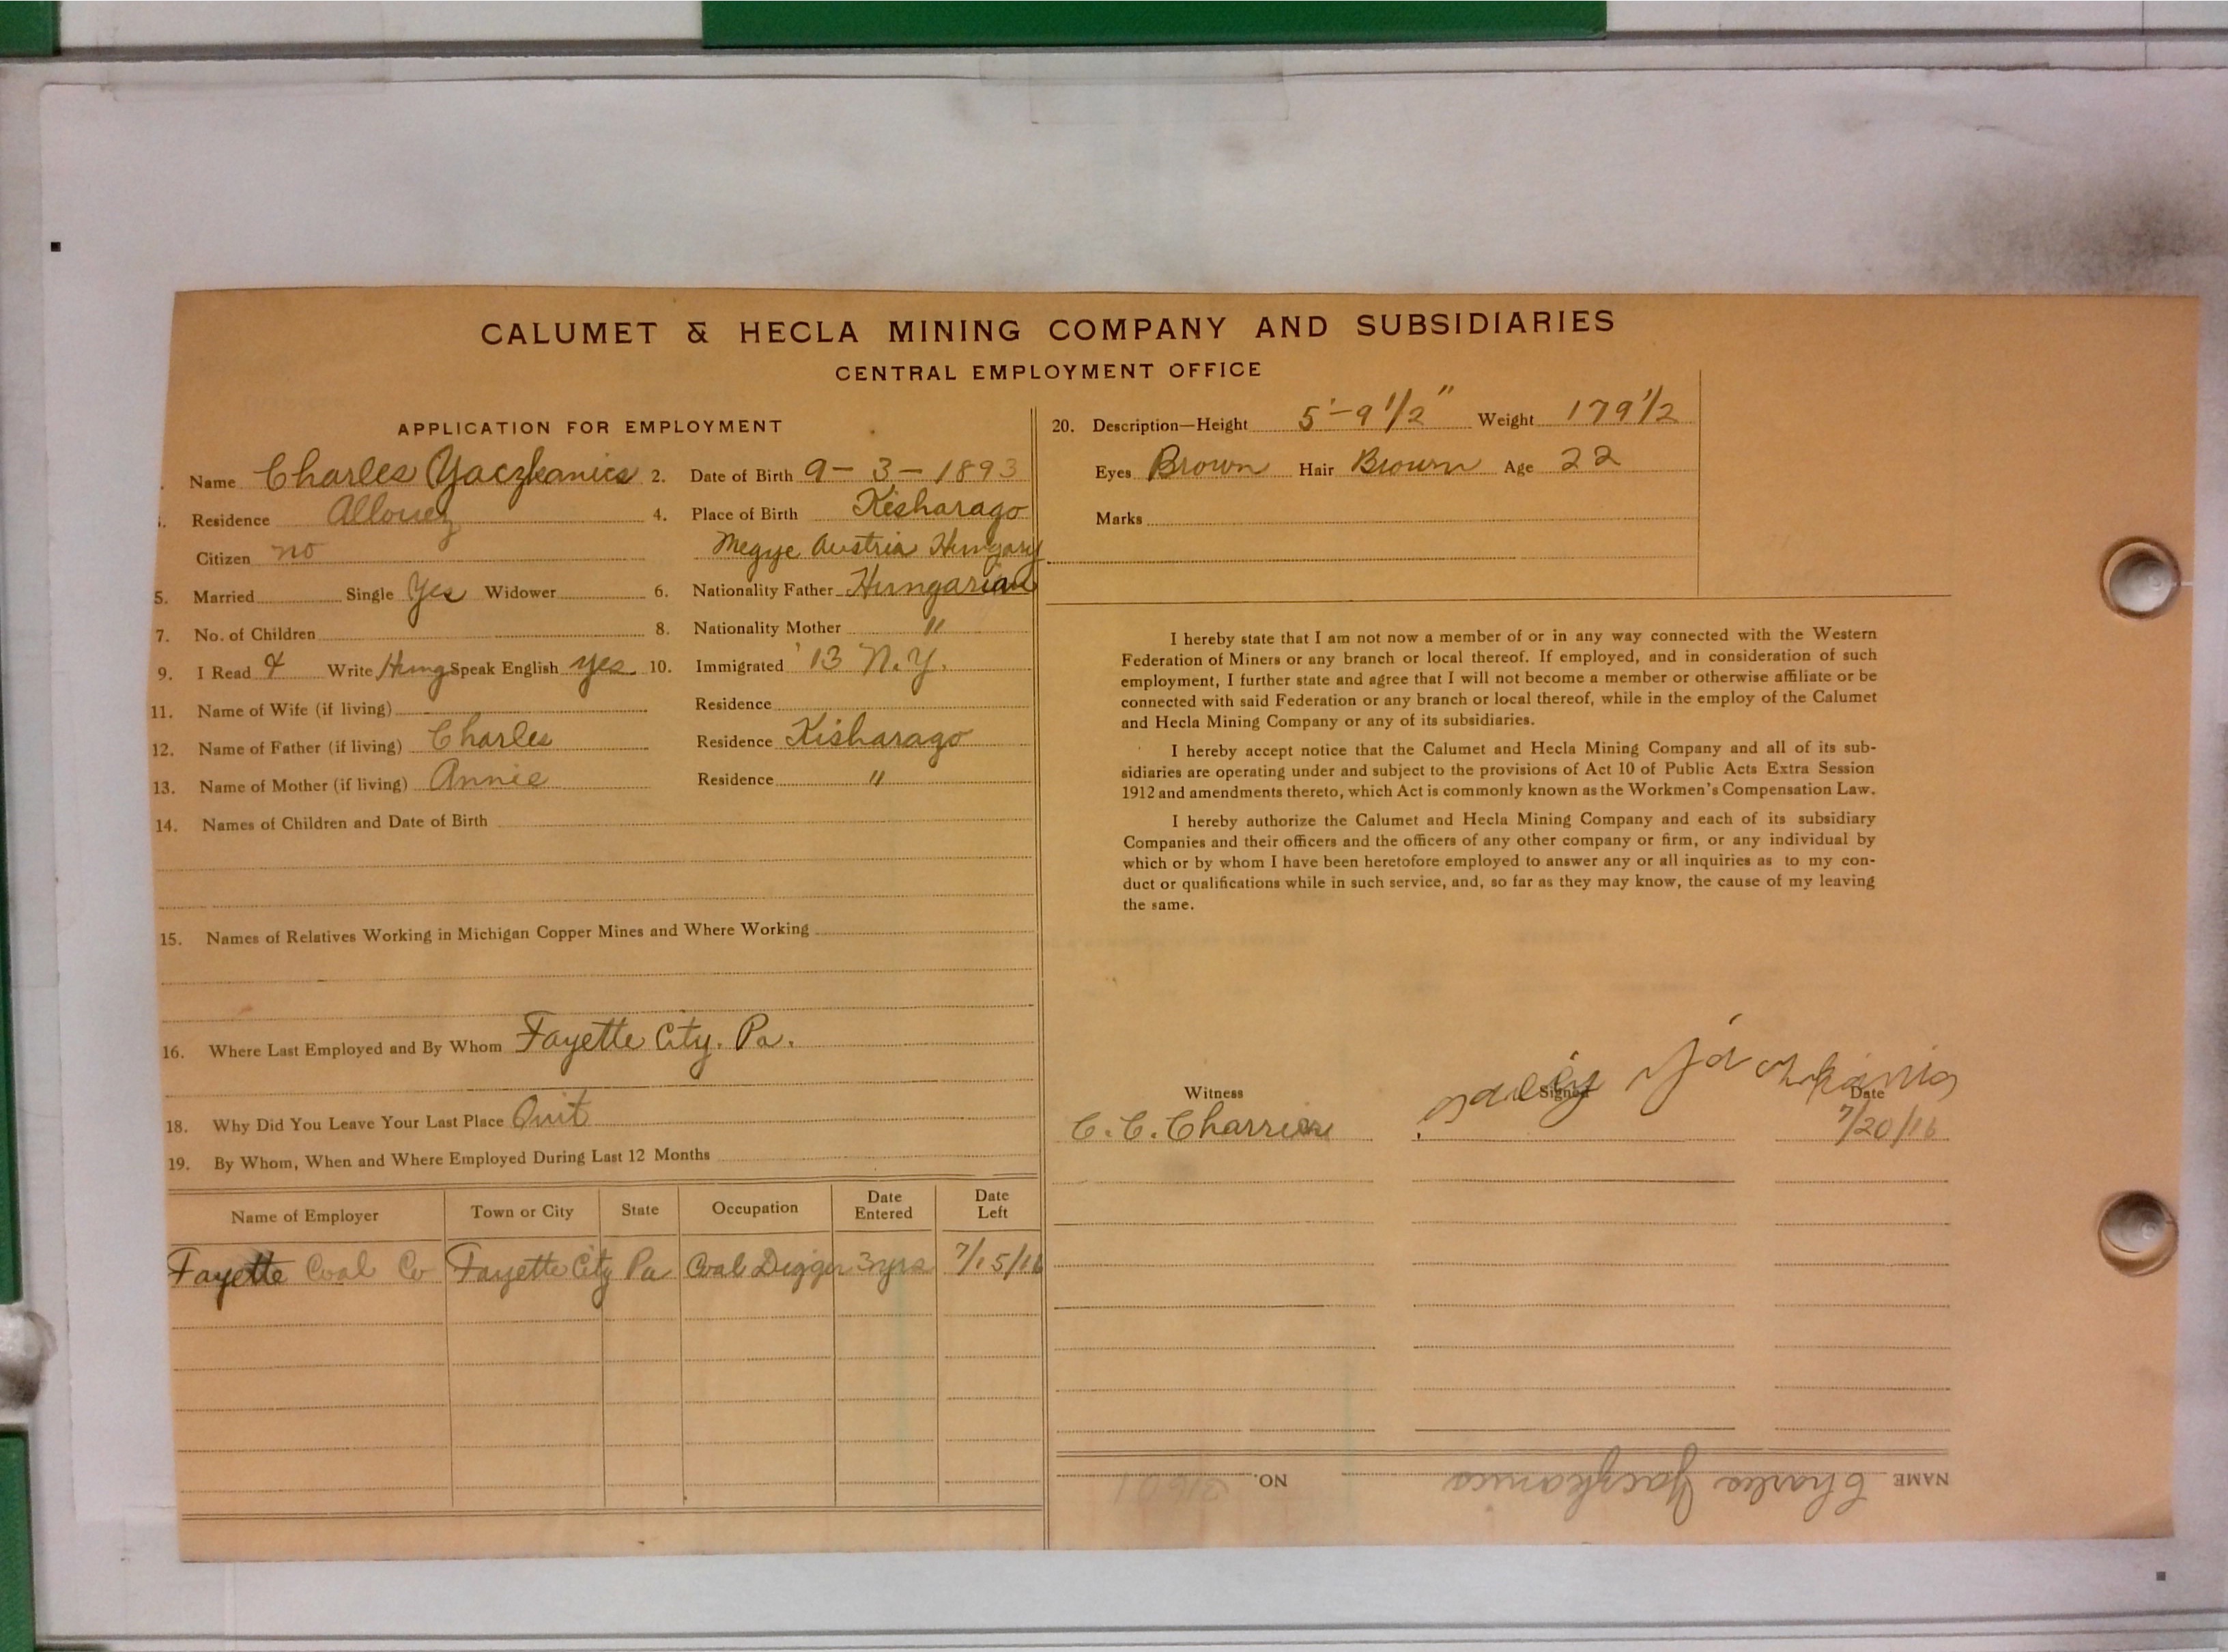 CALUMET & HECLA MINING COMPANY AND SUBSIDIARIES
CENTRAL EMPLOYMENT OFFICE
APPLICATION FOR EMPLOYMENT
Name Charles Yaczkanics 2. Date of Birth 9-3-1893
Residence Allouez 4. Place of Birth Kisharago
Citizen no Megye Austria Hungary
5. Married Single Yes Widower 6. Nationality Father Hungarian
7. No. of Children 8. Nationality Mother "
9. I Read & Write Hung Speak English yes 10. Immigrated '13 N.Y.
11. Name of Wife (if living) Residence
12. Name of Father (if living) Charles Residence Kisharago
13. Name of Mother (if living) Annie Residence "
14. Names of Children and Date of Birth
15. Names of Relatives Working in Michigan Copper Mines and Where Working
16. Where Last Employed and By Whom Fayette City. Pa.
18. Why Did You Leave Your Last Place Quit
19. By Whom, When and Where Employed During Last 12 Months
Name of Employer Town or City State Occupation Date Entered Date Left
Fayette Coal Co Fayette City Pa Coal Digger 3yrs 7/15/16
20. Description—Height 5'-9 1/2" Weight 179 1/2
Eyes Brown Hair Brown Age 22
Marks
I hereby state that I am not now a member of or in any way connected with the Western
Federation of Miners or any branch or local thereof. If employed, and in consideration of such
employment, I further state and agree that I will not become a member or otherwise affiliate or be
connected with said Federation or any branch or local thereof, while in the employ of the Calumet
and Hecla Mining Company or any of its subsidiaries.
I hereby accept notice that the Calumet and Hecla Mining Company and all of its sub-
sidiaries are operating under and subject to the provisions of Act 10 of Public Acts Extra Session
1912 and amendments thereto, which Act is commonly known as the Workmen's Compensation Law.
I hereby authorize the Calumet and Hecla Mining Company and each of its subsidiary
Companies and their officers and the officers of any other company or firm, or any individual by
which or by whom I have been heretofore employed to answer any or all inquiries as to my con-
duct or qualifications while in such service, and, so far as they may know, the cause of my leaving
the same.
Witness Signed Date
C. C. Charrier 7/20/16
NAME Charles Yaczkanics NO.